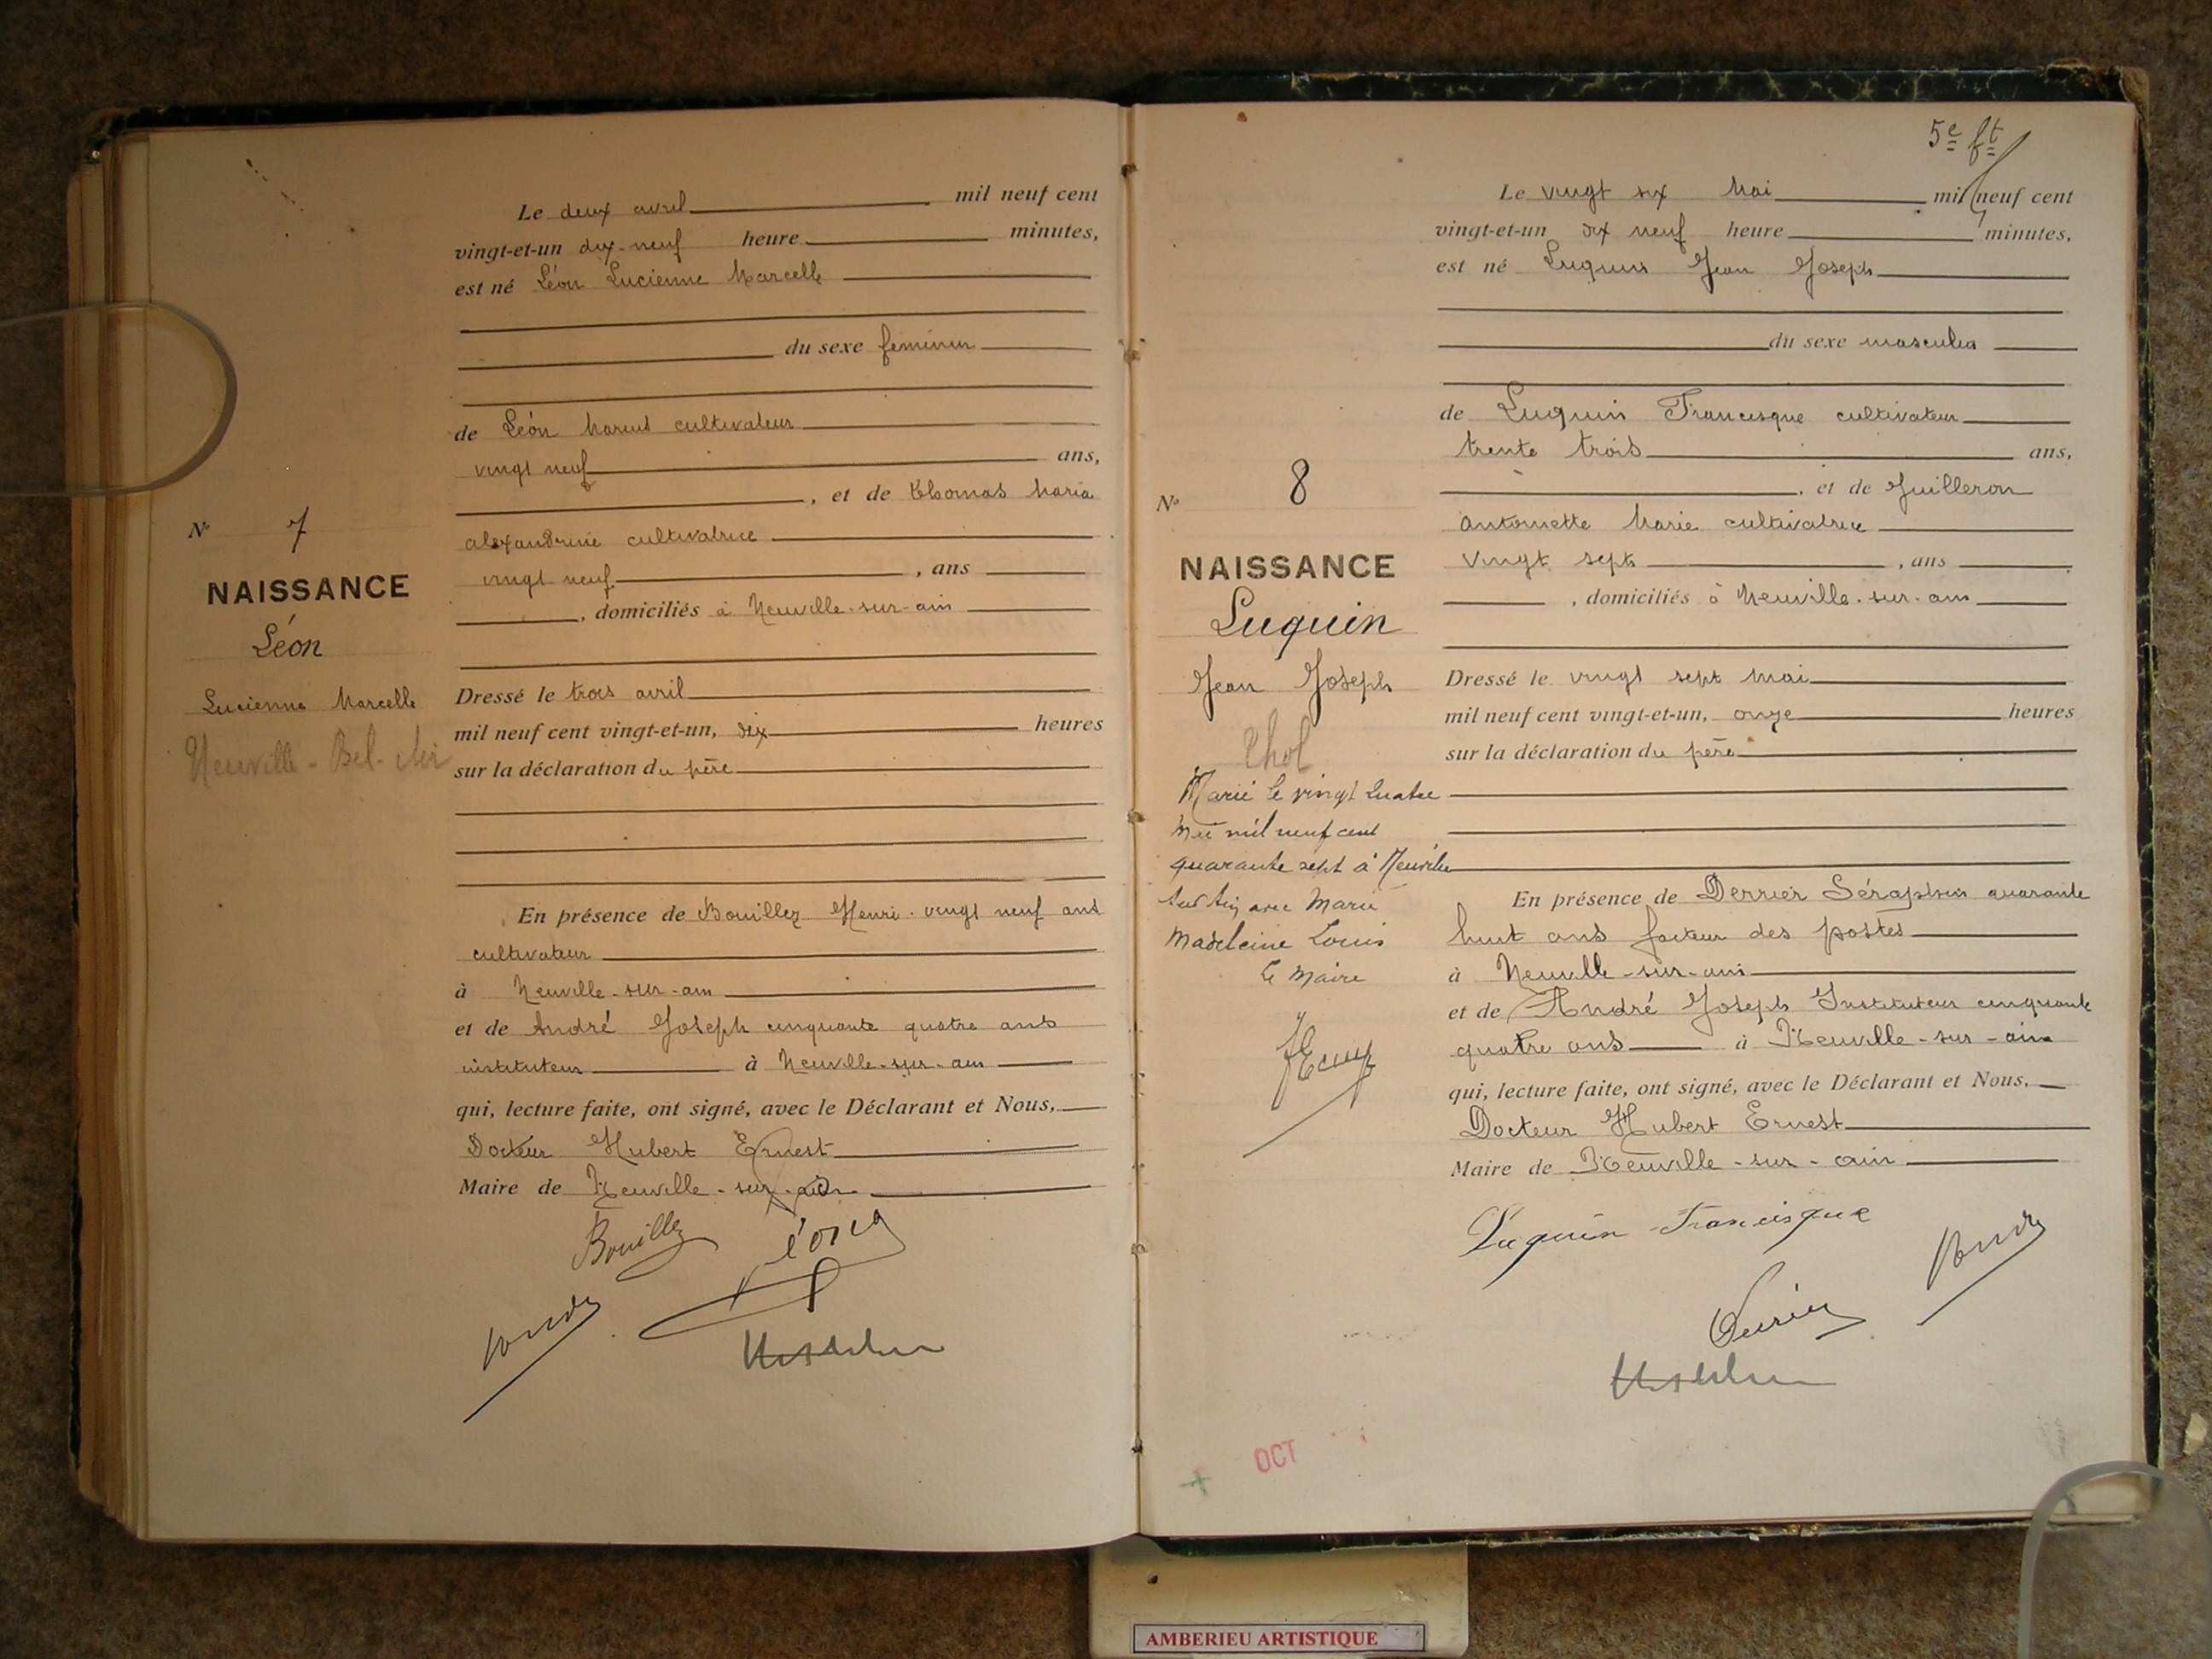 Le deux avril mil neuf cent
vingt-et-un dix-neuf heure minutes,
est né Léon Lucienne Marcelle
du sexe feminin
de Léon Marius cultivateur
vingt neuf ans,
, et de Thomas Maria
alexandrine cultivatrice
vingt neuf , ans
, domiciliés à Neuville-sur-ain
N° 7
NAISSANCE
Léon
Lucienne Marcelle
Neuville - Bel-Air
Dressé le trois avril
mil neuf cent vingt-et-un, dix heures
sur la déclaration du père
En présence de Bouillez Henri vingt neuf ans
cultivateur
à Neuville-sur-ain
et de André Joseph cinquante quatre ans
instituteur à Neuville-sur-ain
qui, lecture faite, ont signé, avec le Déclarant et Nous,
Docteur Hubert Ernest
Maire de Neuville-sur-ain
Bouillez Léon
André
5e ft
Le vingt six Mai mil neuf cent
vingt-et-un dix neuf heure minutes,
est né Luquin Jean Joseph
du sexe masculin
de Luquin Francisque cultivateur
trente trois ans,
, et de Guilleron
antoinette Marie cultivatrice
vingt sept , ans
, domiciliés à Neuville-sur-ain
N° 8
NAISSANCE
Luquin
Jean Joseph
Thol
Marié le vingt quatre
Mai mil neuf cent
quarante sept à Neuville
sur Ain avec Marie
Madeleine Louis
Le Maire
Dressé le vingt sept Mai
mil neuf cent vingt-et-un, onze heures
sur la déclaration du père
En présence de Derrier Séraphin quarante
huit ans facteur des postes
à Neuville-sur-ain
et de André Joseph Instituteur cinquante
quatre ans à Neuville-sur-ain
qui, lecture faite, ont signé, avec le Déclarant et Nous,
Docteur Hubert Ernest
Maire de Neuville-sur-ain
Luquin Francisque
André
Derrier
OCT
AMBERIEU ARTISTIQUE